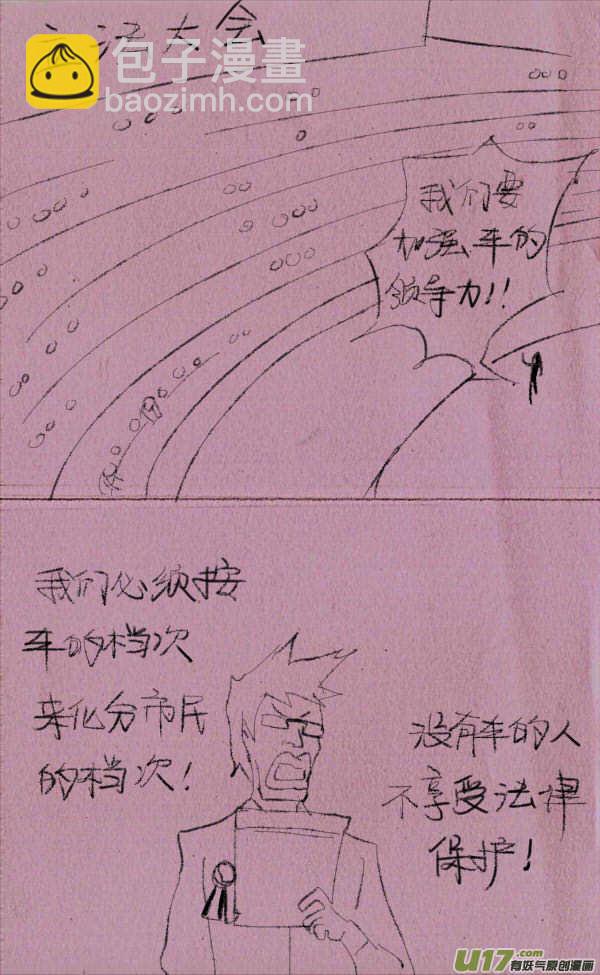 法大会
包子漫畫
baozimh.com
我们要
加强车的
领导力!!
我们必须按
车的档次
来化分市民
的档次!
没有车的人
不享受法律
保护!
U17.com
有妖气原创漫画